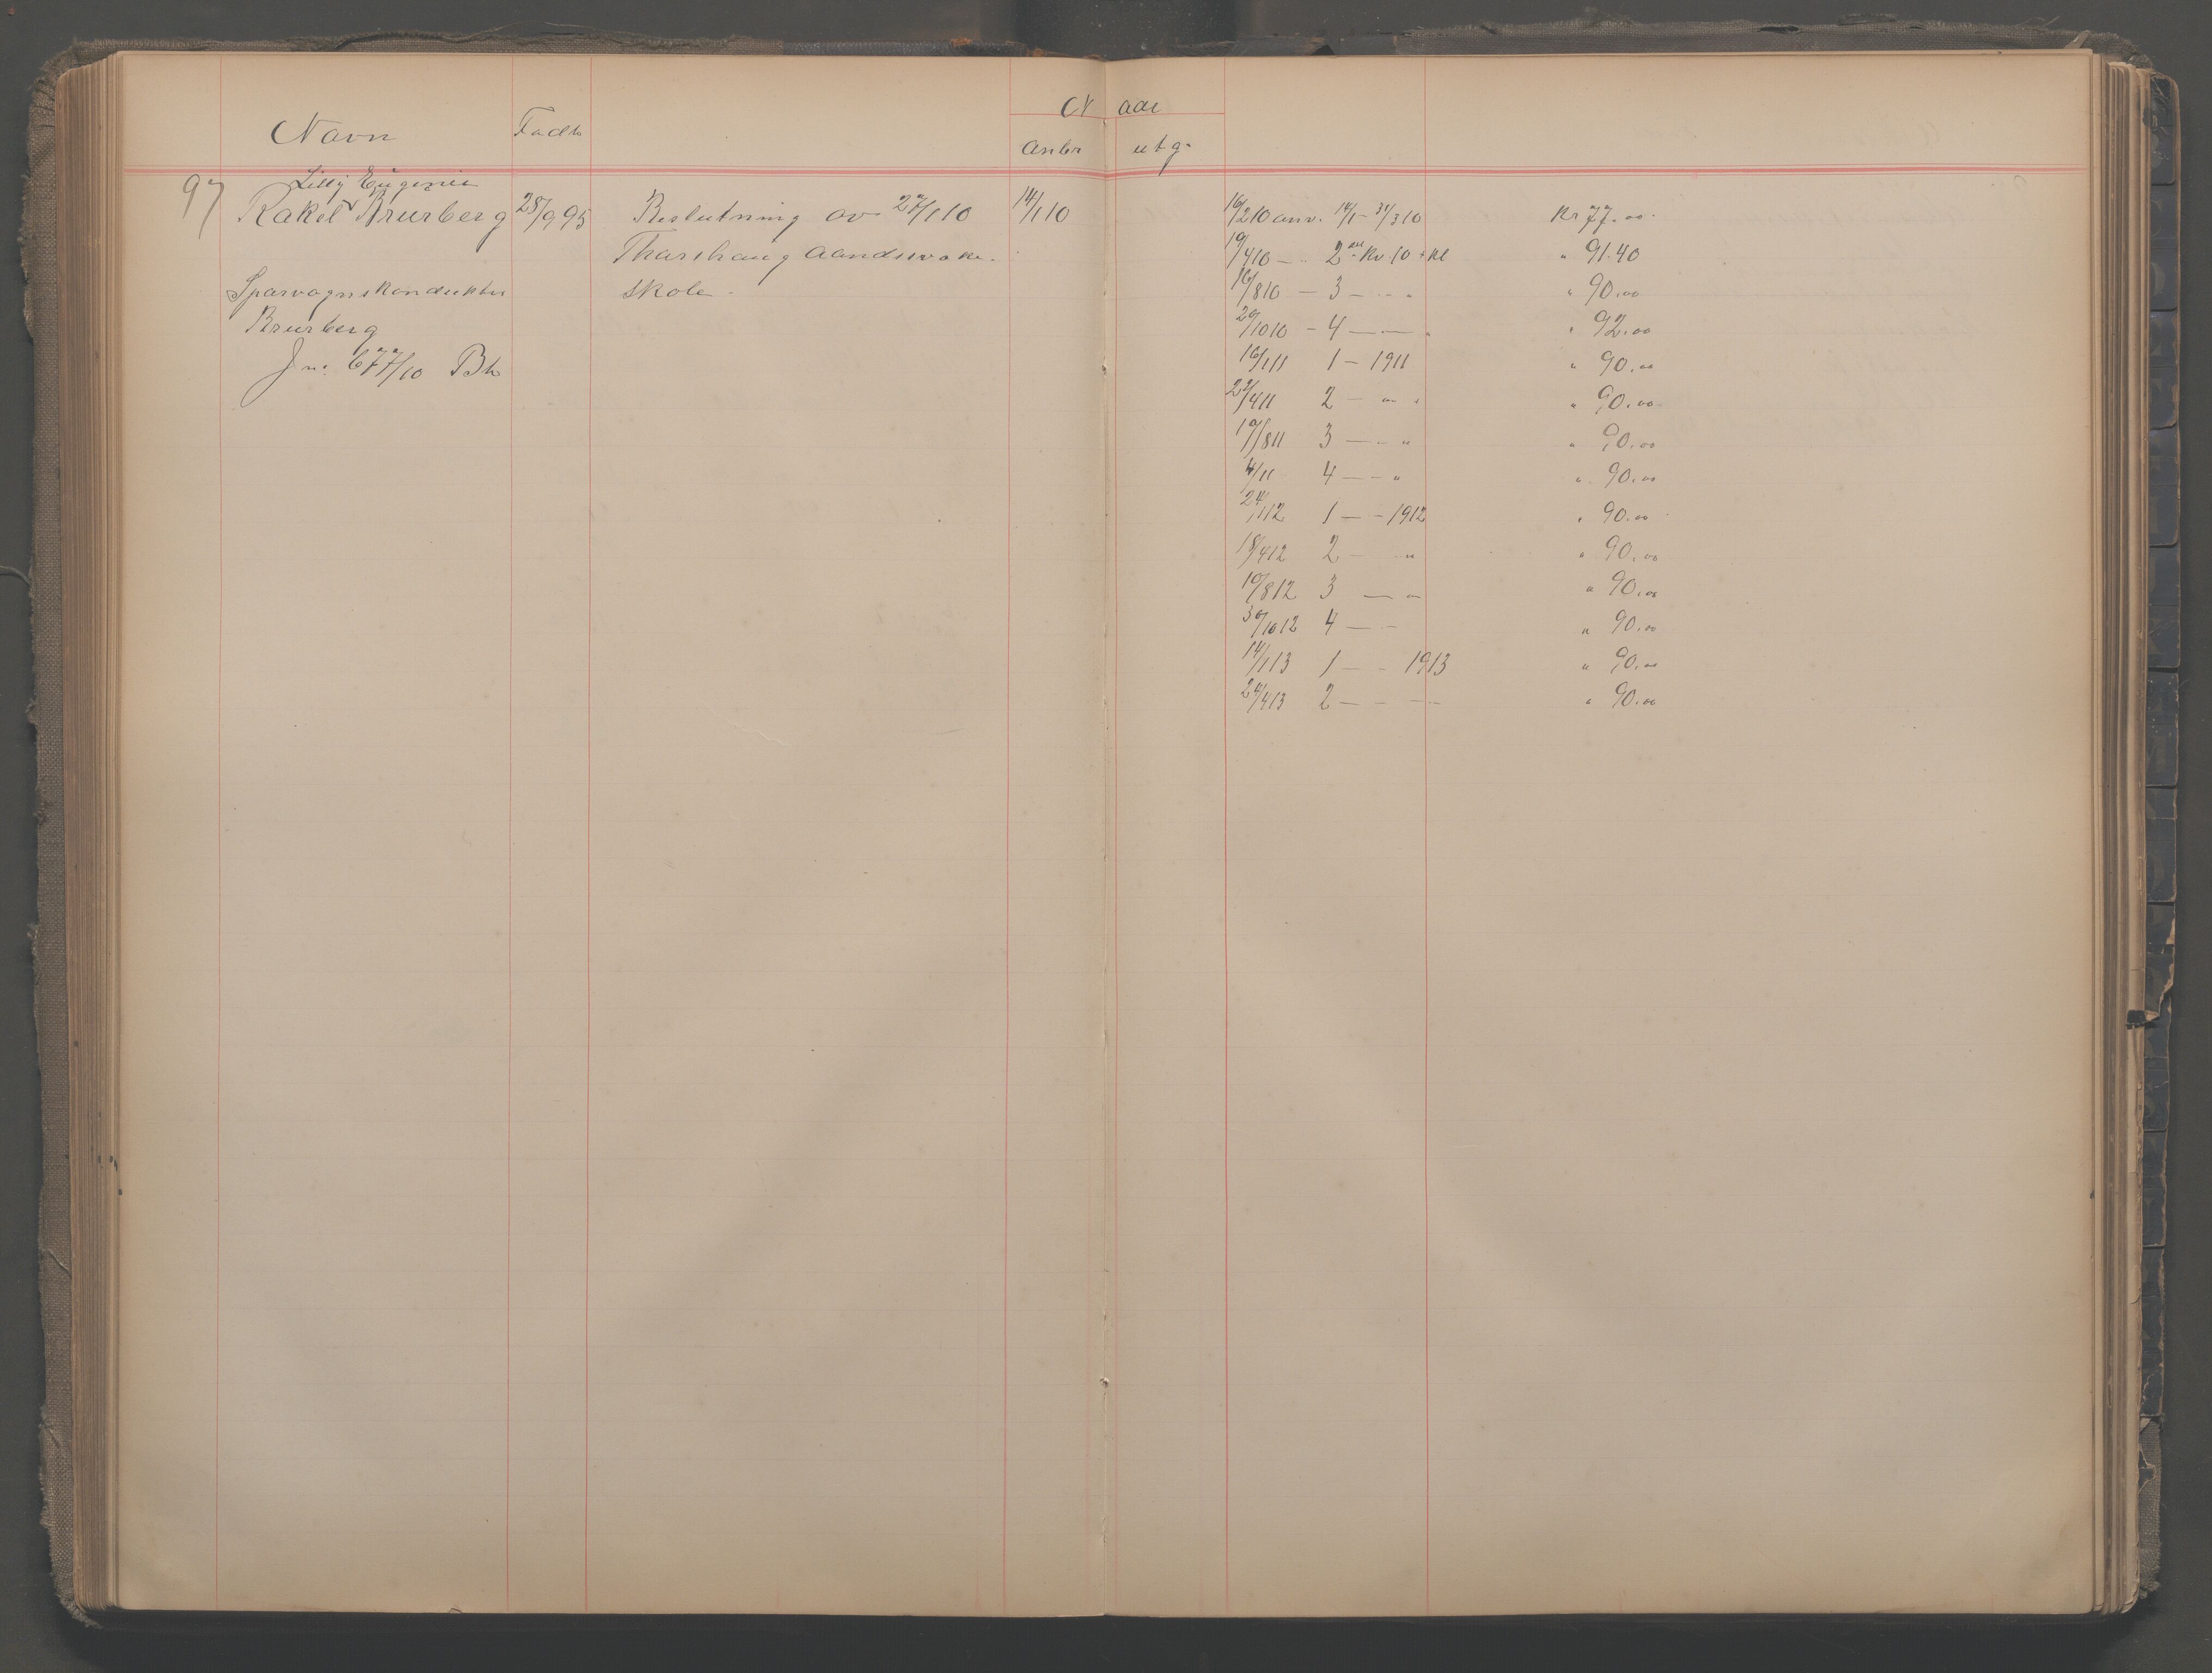 Naar
Navn Født Anbr utg.
97 Lilly Eugenie
Rakel Brurberg 28/9 95 Beslutning av 27/1 10 14/1 10
Thorshaug Aandssvake
skole
Sporvognskonduktør
Brurberg
Jn. 677/10 Bh
16/2 10 anv. 14/1 - 31/3 10 Kr 77.00
19/4 10 — " 2 Kv. 10 + kl " 91.40
16/8 10 — 3 — - " " 90.00
20/10 10 - 4 — — " " 92.00
16/1 11 1 — 1911 " 90.00
22/4 11 2 — " " 90.00
19/8 11 3 — - " " 90.00
4/11 4 — - " " 90.00
24/1 12 1 — - 1912 " 90.00
18/4 12 2 — " " 90.00
19/8 12 3 — " " 90.00
30/10 12 4 — - " 90.00
14/1 13 1 — - 1913 " 90.00
24/4 13 2 — - — " 90.00